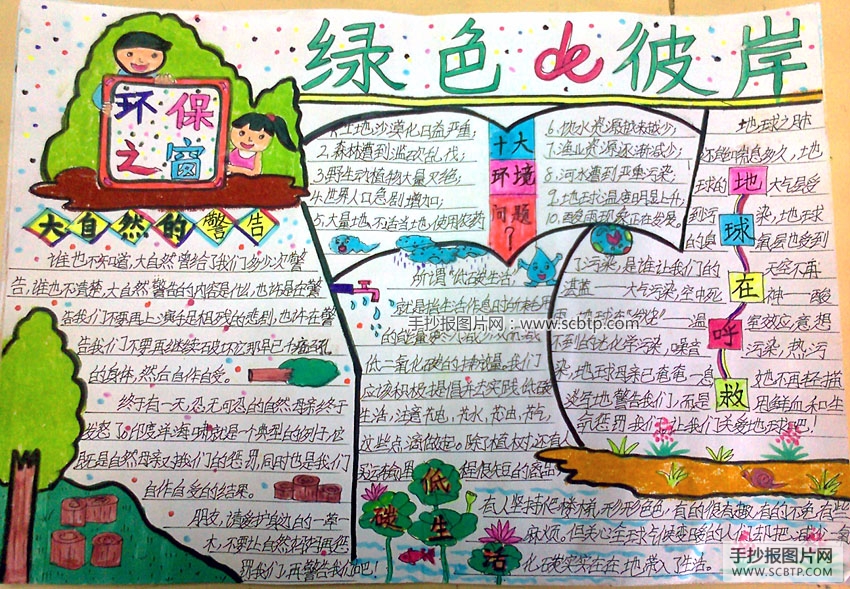 绿色de彼岸
环保
之窗
大自然的警告
谁也不知道,大自然曾给了我们多少次警
告,谁也不清楚,大自然警告的内容是什么,也许是在警
告我们不要再上演手足相残的悲剧,也许在警
告我们不要再继续破坏
的身体,然后自作自受。
终于有一天,忍无可忍的自然母亲终于
发怒了。印度洋海啸就是一个典型的例子,这
既是自然母亲对我们的惩罚,同时也是我们
自作自受的结果。
朋友,请爱护身边的一草一
木,不要让大自然
罚我们,再警告我们吧!
十大
环境
问题
?
1.土地沙漠化日益严重;
2.森林遭到滥砍乱伐;
3.野生动植物大量灭绝;
4.世界人口急剧增加;
5.大量地,不适当地,使用农药
6.饮水资源越来越少;
7.渔业资源逐渐减少;
8.河水遭到严重污染;
9.地球温度明显上升;
10.酸雨现象正在发展。
所谓“低碳生活”,
就是指生活作息时所耗用
的能量要尽量减少,从而减
低二氧化碳的排放量。我们
应该积极提倡并去实践低碳
生活,注意节电,节水,节油,节气,
这些点滴做起。除了植树,还有人
买运输里程很短的商品,
有人坚持爬楼梯,形形色色,有的很有趣,有的不免有些
麻烦。但关心全球气候变暖的人们却把减少二氧
化碳实实在在地带入了生活。
低
碳
生
活
地
球
在
呼
救
地球之肺
还能喘息多久,土地
球的 大气层受
到污 染,地球
的臭 氧层也受到
了污染,是谁让我们的 天空不再
湛蓝——大气污染,空中死神——酸
雨,地球在“发烧”——温室效应,意想
不到的达化学污染,噪音污染,热污
染,地球母亲已奄奄一息 她不再轻描
淡写地警告我们,而是 用鲜血和生
命惩罚我们,让我们关爱地球吧!
手抄报图片网:www.scbtp.com
手抄报图片网
WWW.SCBTP.COM